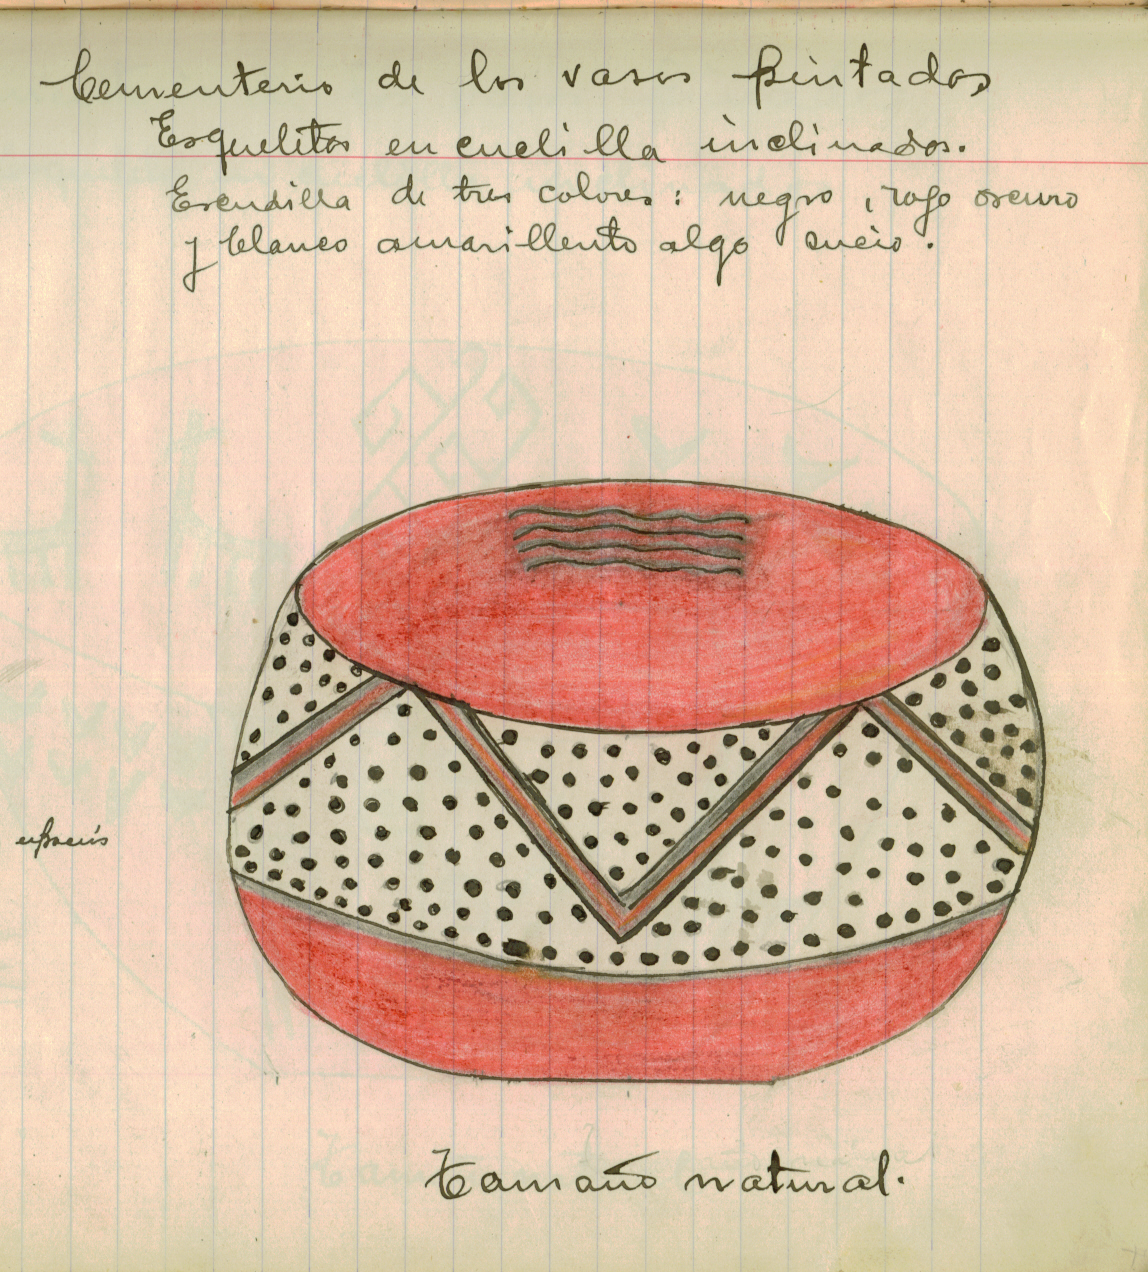 Cementerio de los vasos pintados
Esqueletos en cuclilla inclinados.
Escudilla de tres colores: negro, rojo oscuro
y blanco amarillento algo sucio.
Tamaño natural.